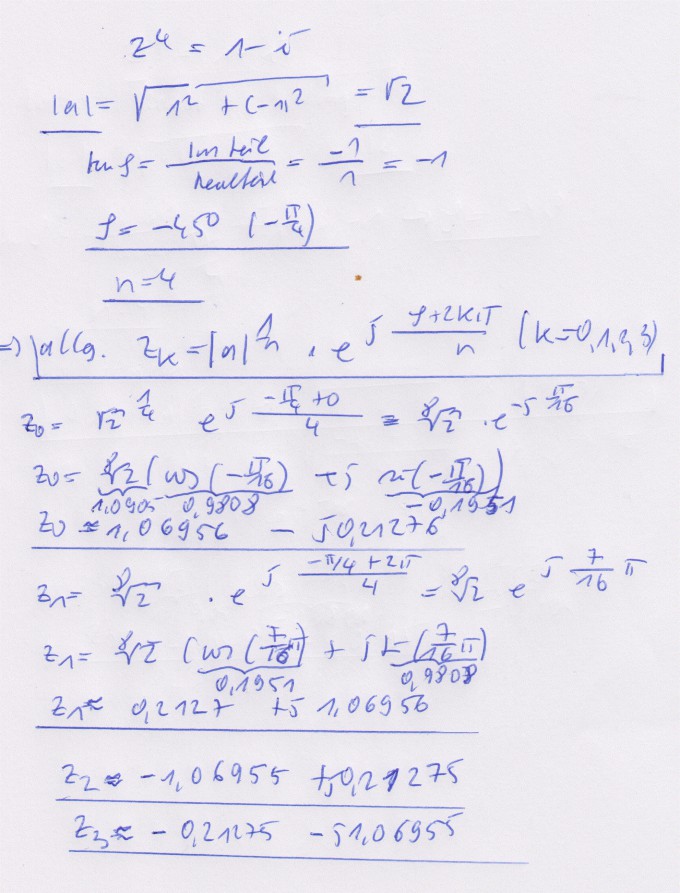 z⁴ = 1 - i
|a| = √(1² + (-1)²) = √2
tan φ = Im teil / Realteil = -1/1 = -1
φ = -45° (-π/4)
n = 4
=> allg. z_K = |a|^(1/n) · e^(j (φ+2Kπ)/n) (k=0,1,2,3)
z₀ = √2^(1/4) e^(j (-π/4 +0)/4) = ⁸√2 · e^(-j π/16)
z₀ = ⁸√2 (cos (-π/16) + j (-π/16))
1,0905 0,9808 -0,1951
z₀ ≈ 1,06956 - j0,21276
z₁ = ⁸√2 · e^(j (-π/4 + 2π)/4) = ⁸√2 e^(j 7/16 π)
z₁ = ⁸√2 (cos (7/16 π) + j (7/16 π))
0,1951 0,9808
z₁ ≈ 0,2127 + j 1,06956
z₂ ≈ -1,06955 + j0,21275
z₃ ≈ -0,21275 - j1,06955